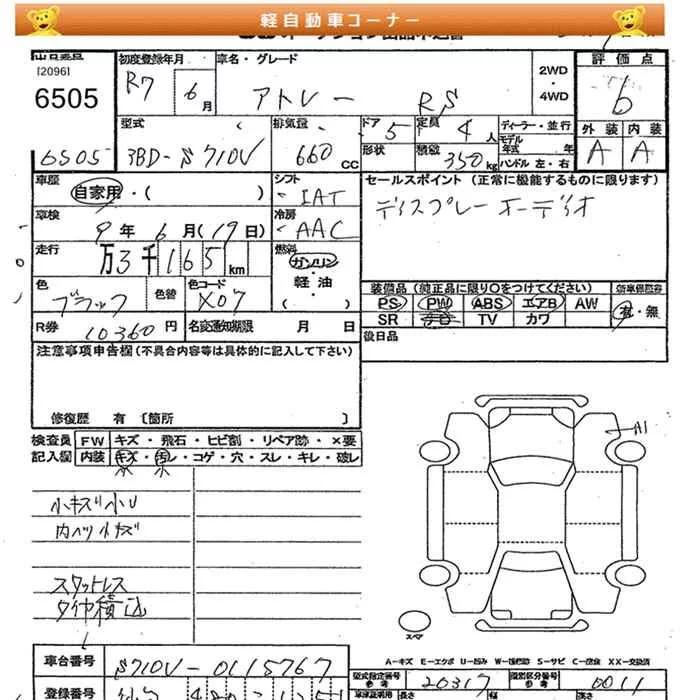 軽自動車コーナー
[2096]
6505
6505
初度登録年月
R7 6月
車名・グレード
アトレー RS
2WD
・
4WD
評価点
6
外装 内装
A A
型式
3BD-S710V
排気量
660CC
ドア 5
形状
定員 4人
積載 350kg
ディーラー・並行
モデル年式 年
ハンドル 左・右
車歴
自家用・( )
シフト
IAT
セールスポイント(正常に機能するものに限ります)
ディスプレーオーディオ
車検
9年6月(19日)
冷房
AAC
走行
万3千165km
燃料
ガソリン
・
軽油
・
( )
色
ブラック
色替
色コード
X07
装備品(純正品に限り〇をつけてください)
PS PW ABS エアB AW
SR ナビ TV カワ
新車保証書
有・無
R券 10360円
名変通知期限 月 日
後日品
注意事項申告欄(不具合内容等は具体的に記入して下さい)
修復歴 有〔箇所 〕
検査員記入欄
FW キズ・飛石・ヒビ割・リペア跡・×要
内装 キズ・汚レ・コゲ・穴・スレ・キレ・破レ
小キズ小U
内ヘリ小キズ
スタットレス
タイヤ積込
A1
スペア
A-キズ E-エクボ U-凹み W-補修跡 S-サビ C-腐食 XX-交換済
車台番号
S710V-0115767
型式指定番号
参考
20317
類別区分番号
参考
0011
登録番号
長さ
幅
高さ